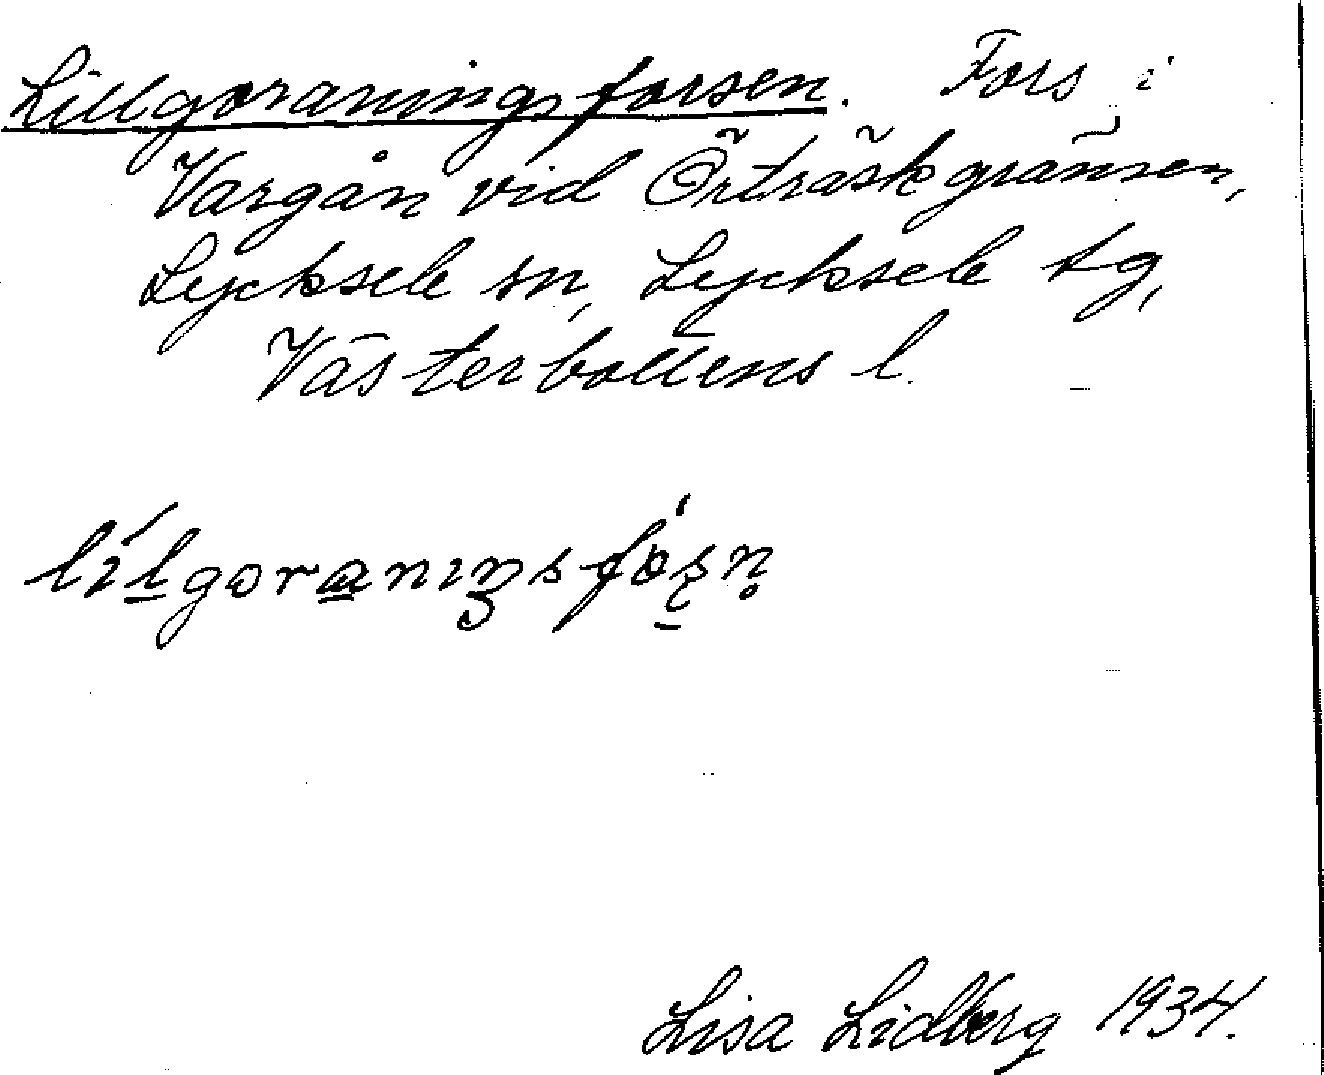 Lillgoraningsforsen. Fors i
Vargån vid Örträskgränsen,
Lycksele sn, Lycksele tg,
Västerbottens l.
lílgoranıŋsfo̍ʂn̥
Lisa Lidberg 1934.